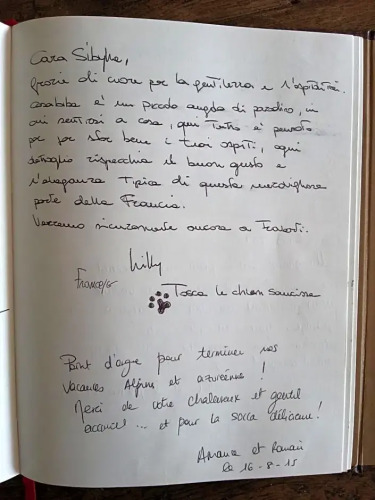 Cara Sibylle,
grazie di cuore per la gentilezza e l'ospitalità.
è un piccolo angolo di paradiso, in
cui sentirsi a casa, qui tutto è pensato
per far star bene i tuoi ospiti, ogni
dettaglio rispecchia il buon gusto e
l'eleganza tipica di questa meravigliosa
parte della Francia.
Verremo sicuramente ancora a
Willy
Francesca
Tosca le chien saucisse
Point d'orgue pour terminer nos
vacances Alpins et azuréennes !
Merci de votre chaleureux et gentil
accueil... et pour la socca délicieuse !
et
le 16-8-15